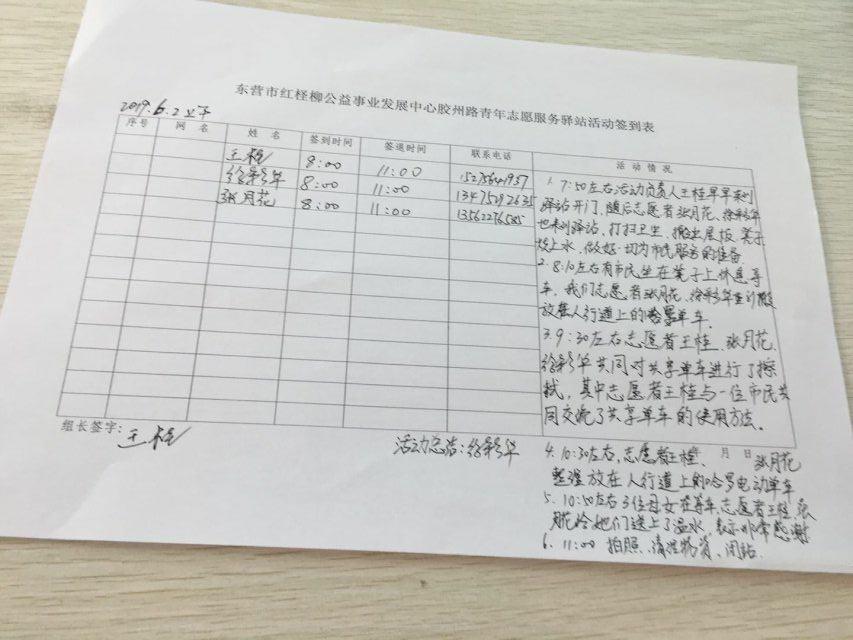 东营市红柽柳公益事业发展中心胶州路青年志愿服务驿站活动签到表
2019.6.2
序号 网名 姓名 签到时间 签退时间 联系电话 活动情况
王桂 8:00 11:00
徐彩华 8:00 11:00
张月花 8:00 11:00 13562276585
1. 7:50左右活动负责人王桂早早来到
驿站开门,随后志愿者张月花、徐彩华
也来到驿站,打扫卫生,搬出展板、凳子
烧上水,做好一切为市民服务的准备
2. 8:10左右有市民坐在凳子上休息等
车,我们志愿者张月花、徐彩华
放在人行道上的哈罗单车.
3.9:30左右志愿者王桂、张月花、
徐彩华共同对共享单车进行了擦
拭,其中志愿者王桂与一位市民共
同交流了共享单车的使用方法。
组长签字: 王桂
月 日
活动总结:徐彩华
4. 10:30左右,志愿者王桂、张月花
整理放在人行道上的哈罗电动单车
5. 10:50左右3位母女在等车,志愿者王桂、张
月花给她们送上了温水,表示非常感谢
6. 11:00 拍照、清理物资、闭站.